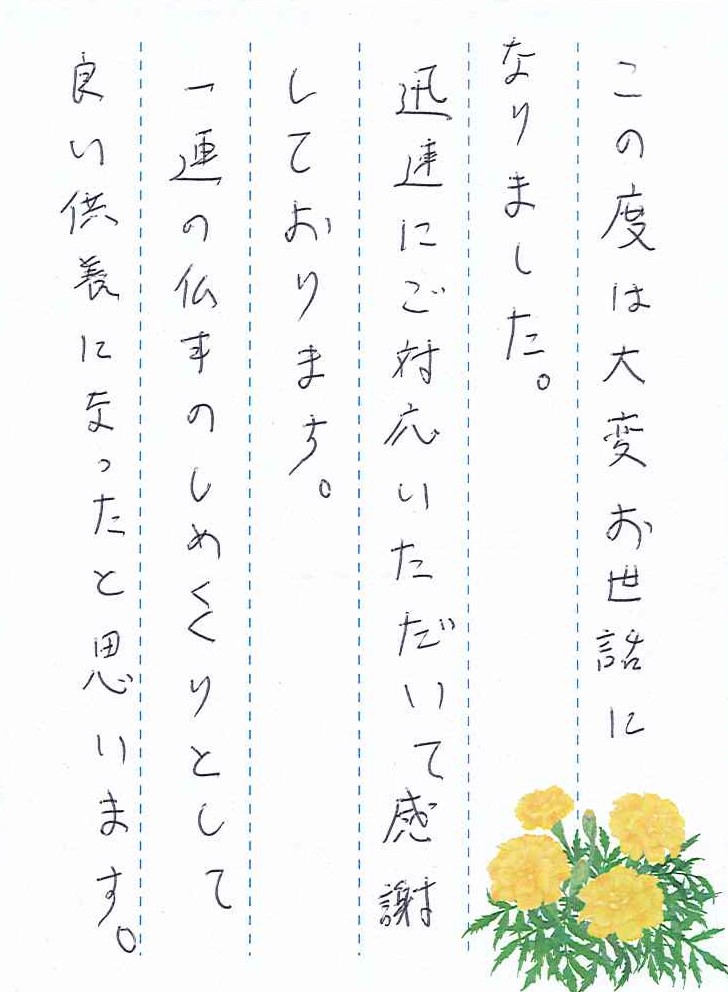 この度は大変お世話に
なりました。
迅速にご対応いただいて感謝
しております。
一連の仏事のしめくくりとして
良い供養になったと思います。